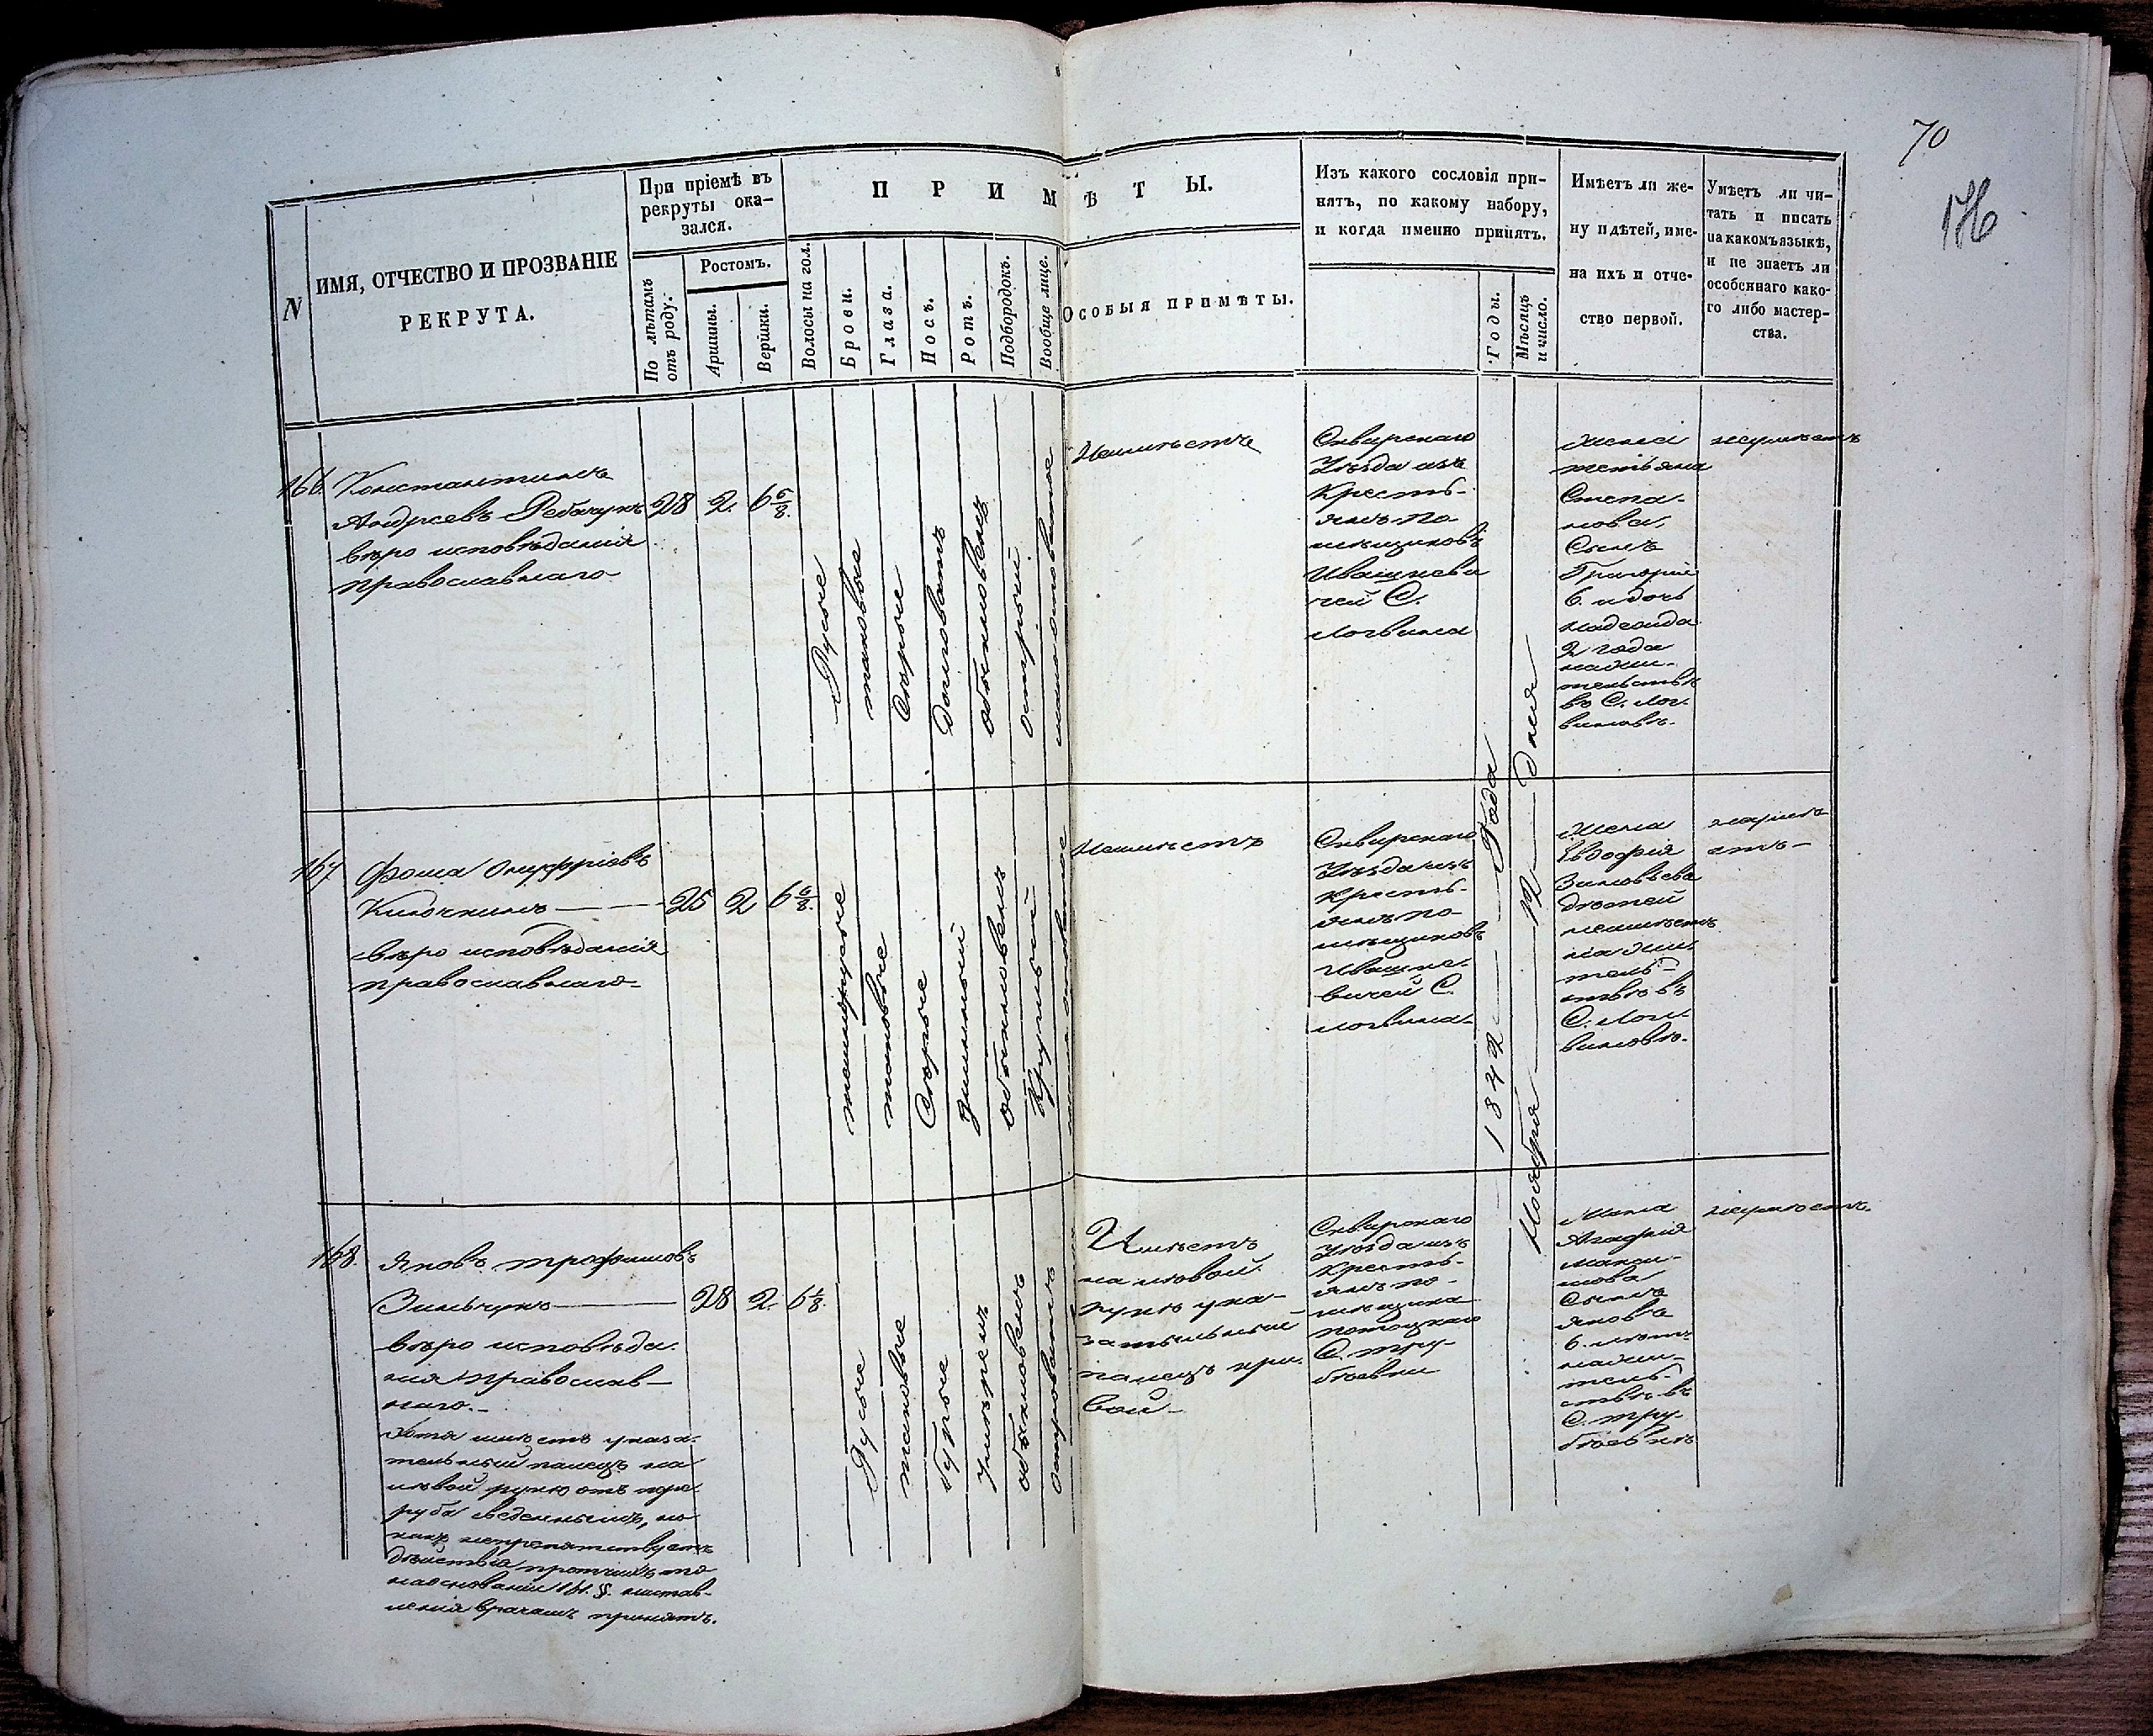 70
176
N
ИМЯ, ОТЧЕСТВО И ПРОЗВАНІЕ
РЕКРУТА.
При пріемѣ въ
рекруты ока-
зался.
По лѣтамъ
отъ роду.
Ростомъ.
Аршины.
Вершки.
ПРИМѢТЫ.
Волосы на гол.
Брови.
Глаза.
Носъ.
Ротъ.
Подбородокъ.
Вообще лице.
ОСОБЫЯ ПРИМѢТЫ.
Изъ какого сословія при-
нятъ, по какому набору,
и когда именно принятъ.
Годы.
Мѣсяцъ
и число.
Имѣетъ ли же-
ну и дѣтей, име-
на ихъ и отче-
ство первой.
Умѣетъ ли чи-
тать и писать
на какомъ языкѣ,
и не знаетъ ли
особеннаго како-
го либо мастер-
ства.
166.
Константинъ
Андреевъ Ребачукъ
вѣро исповѣданія
православнаго
28
2.
6 5/8.
Русые
таковые
Сѣрые
долговатъ
обыкновенъ
острый
Неимѣетъ
Сквирскаго
Уѣзда изъ
Кресть-
янъ по-
мѣщиковъ
Ивашкеви
чей С.
Логвина
Жена
Степа-
нова,
Сынъ
Григорій
6. и дочь
2 года
на жи-
тельствѣ
въ С. Лог-
виновѣ.
неумѣетъ
167
Фома Онуфріевъ
вѣро исповѣданія
православнаго
25
2
6 6/8.
темнорусые
таковые
Сѣрые
длинный
обыкновенъ
Круглый
Неимѣетъ
Сквирскаго
Уѣзда изъ
Кресть-
янъ по-
мѣщиковъ
Ивашке-
вичей С.
Логвина
Жена
Зиновьева
дѣтей
неимѣетъ
на жи-
тель-
ствѣ въ
С. Лог-
виновѣ.
неумѣ
етъ
1842 Года
Ноября 12 дня
168.
Яковъ Трофимовъ
Зинчукъ
вѣро исповѣда-
нія православ-
наго.
Хотя имѣетъ указа-
тельный палецъ на
лѣвой рукѣ отъ пере-
руба сведеннымъ, но
какъ непрепятствуетъ
дѣйствія прочимъ то
на основаніи 161. §. настав-
ленія врачамъ принятъ.
28
2.
6 1/8.
Русые
таковые
бурые
умѣренъ
обыкновенъ
островатъ
Имѣетъ
на лѣвой
рукѣ ука-
зательный
палецъ кри-
вой
Сквирскаго
Уѣзда изъ
Кресть-
янъ по-
мѣщика
Потоцкаго
С. Тру-
бѣевки
Жена
Агафія
Макси-
мова
Сынъ
Яковъ
6. лѣтъ
на жи-
тель-
ствѣ въ
С. Тру-
бѣевкѣ
неумѣетъ.